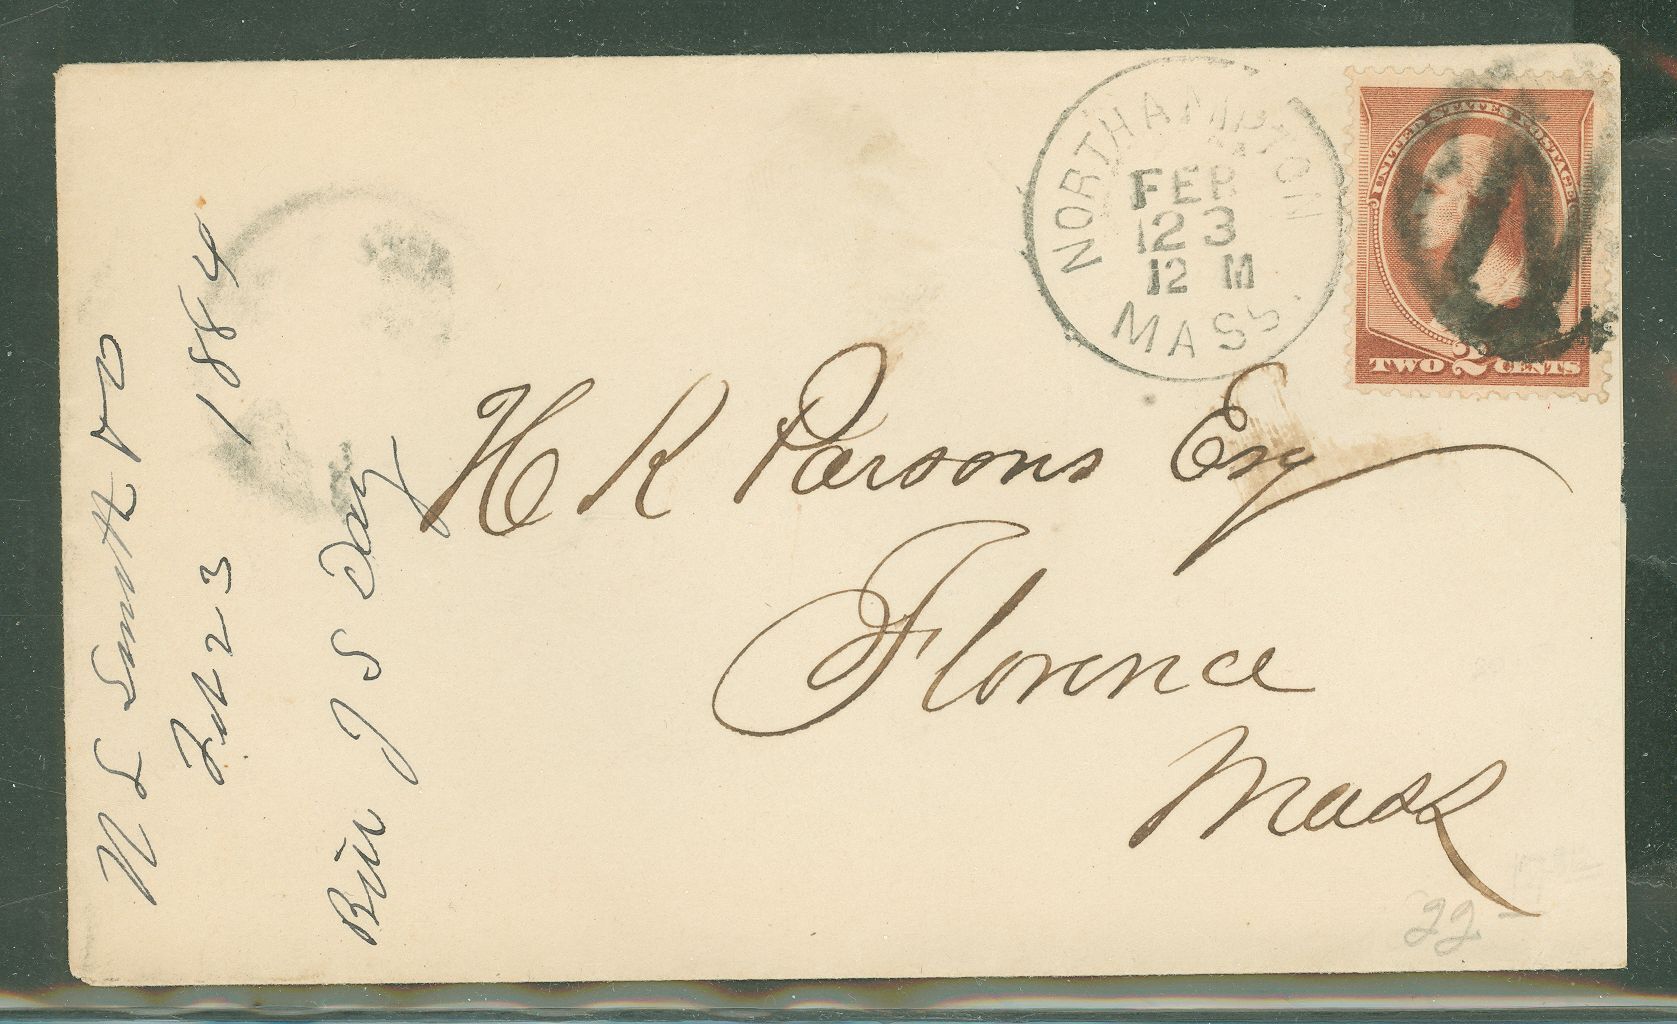 NORTHAMPTON
FEB
123
12 M
MASS.
UNITED STATES POSTAGE
TWO 2 CENTS
H R Parsons Esq
Florence
Mass
N L Smith
Feb 23 1884
J S Day
22